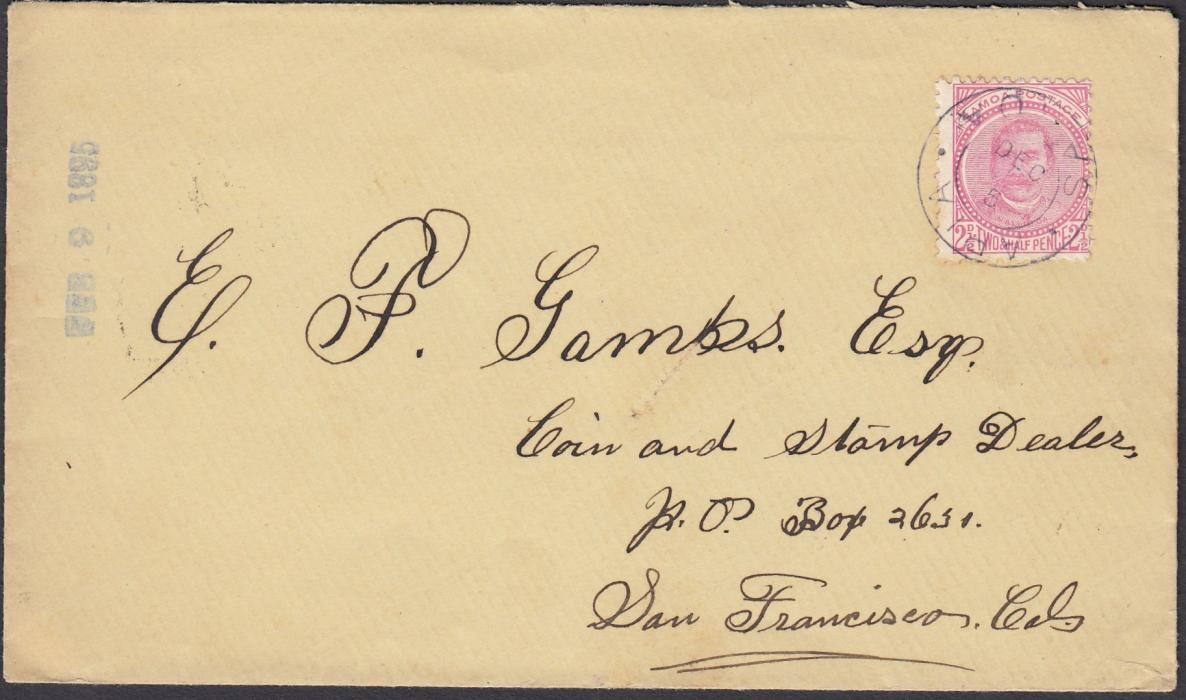 SAMOA POSTAGE
2½D TWO & HALF PENCE 2½D
APIA SAMOA
DEC
5
E. F. Gambs. Esq.
Coin and Stamp Dealer,
P. O. Box 2631.
San Francisco, Cal.
FEB 9 1895